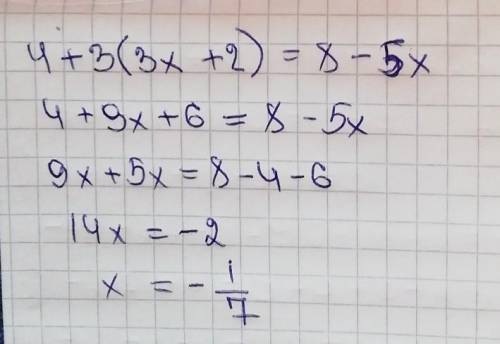 4 + 3(3x + 2) = 8 - 5x
4 + 9x + 6 = 8 - 5x
9x + 5x = 8 - 4 - 6
14x = -2
x = -1/7